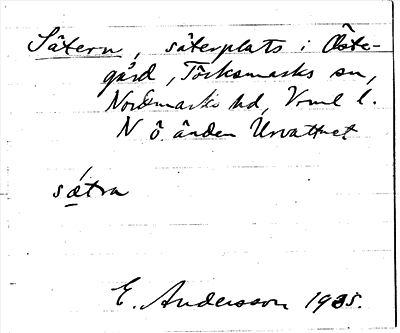 Sätern, säterplats i Öste-
gård, Töcksmarks sn,
Nordmarks hd, Vrml l.
N ö. änden Urvattnet
sætra
E. Andersson 1935.